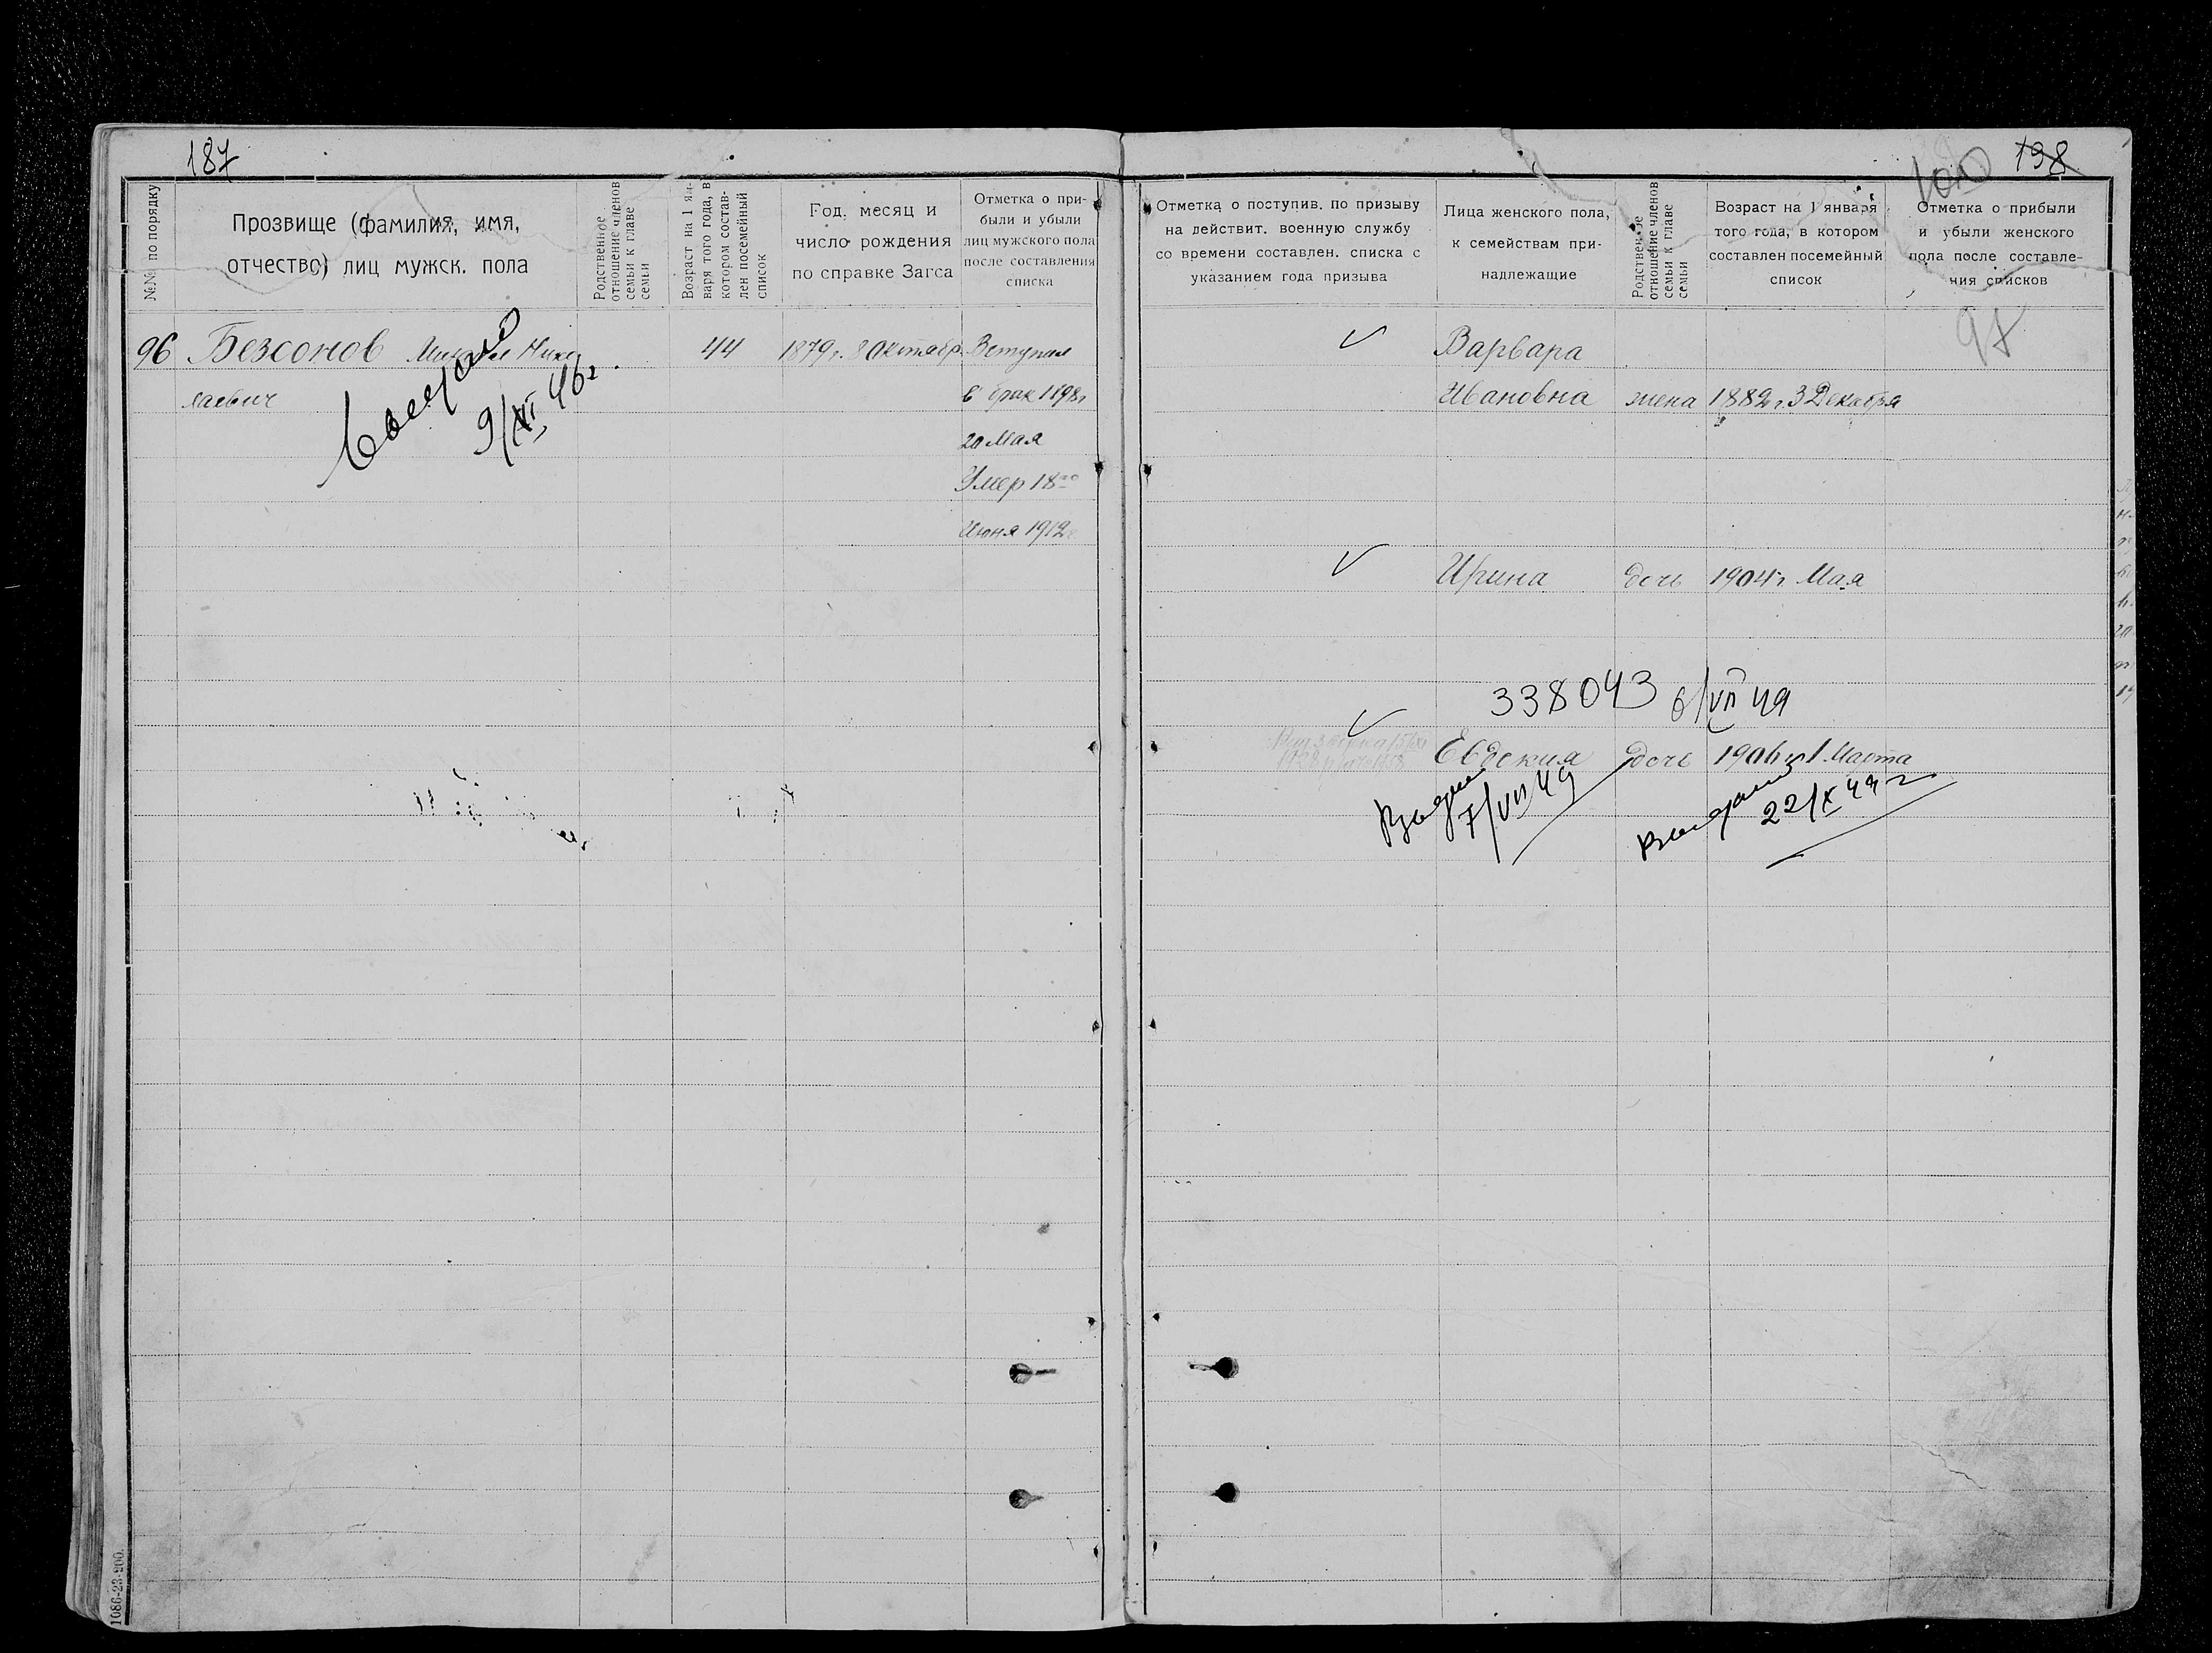 187
№№ по порядку
Прозвище (фамилия, имя,
отчество) лиц мужск. пола
Родственное
отношение членов
семьи к главе
семьи
Возраст на 1 ян-
варя того года, в
котором состав-
лен посемейный
список
Год, месяц и
число рождения
по справке Загса
Отметка о при-
были и убыли
лиц мужского пола
после составления
списка
96 Безсонов Михаил Нико
лаевич
9/XI 46 г.
44
1879 г. 8 Октябр.
Вступил
в брак 1898 г
20 Мая
Умер 18го
Июня 1912
1086-23-200.
100
198
Отметка о поступив. по призыву
на действит. военную службу
со времени составлен. списка с
указанием года призыва
Лица женского пола,
к семействам при-
надлежащие
Родственное
отношение членов
семьи к главе
семьи
Возраст на 1 января
того года, в котором
составлен посемейный
список
Отметка о прибыли
и убыли женского
пола после составле-
ния списков
98
Варвара
Ивановна жена 1882 г. 3 Декабря
Ирина дочь 1904 г. Мая
338043 6/VII 49
Евдокия дочь 1906 г. 1 Марта
7/VII 49
22/X 49 г